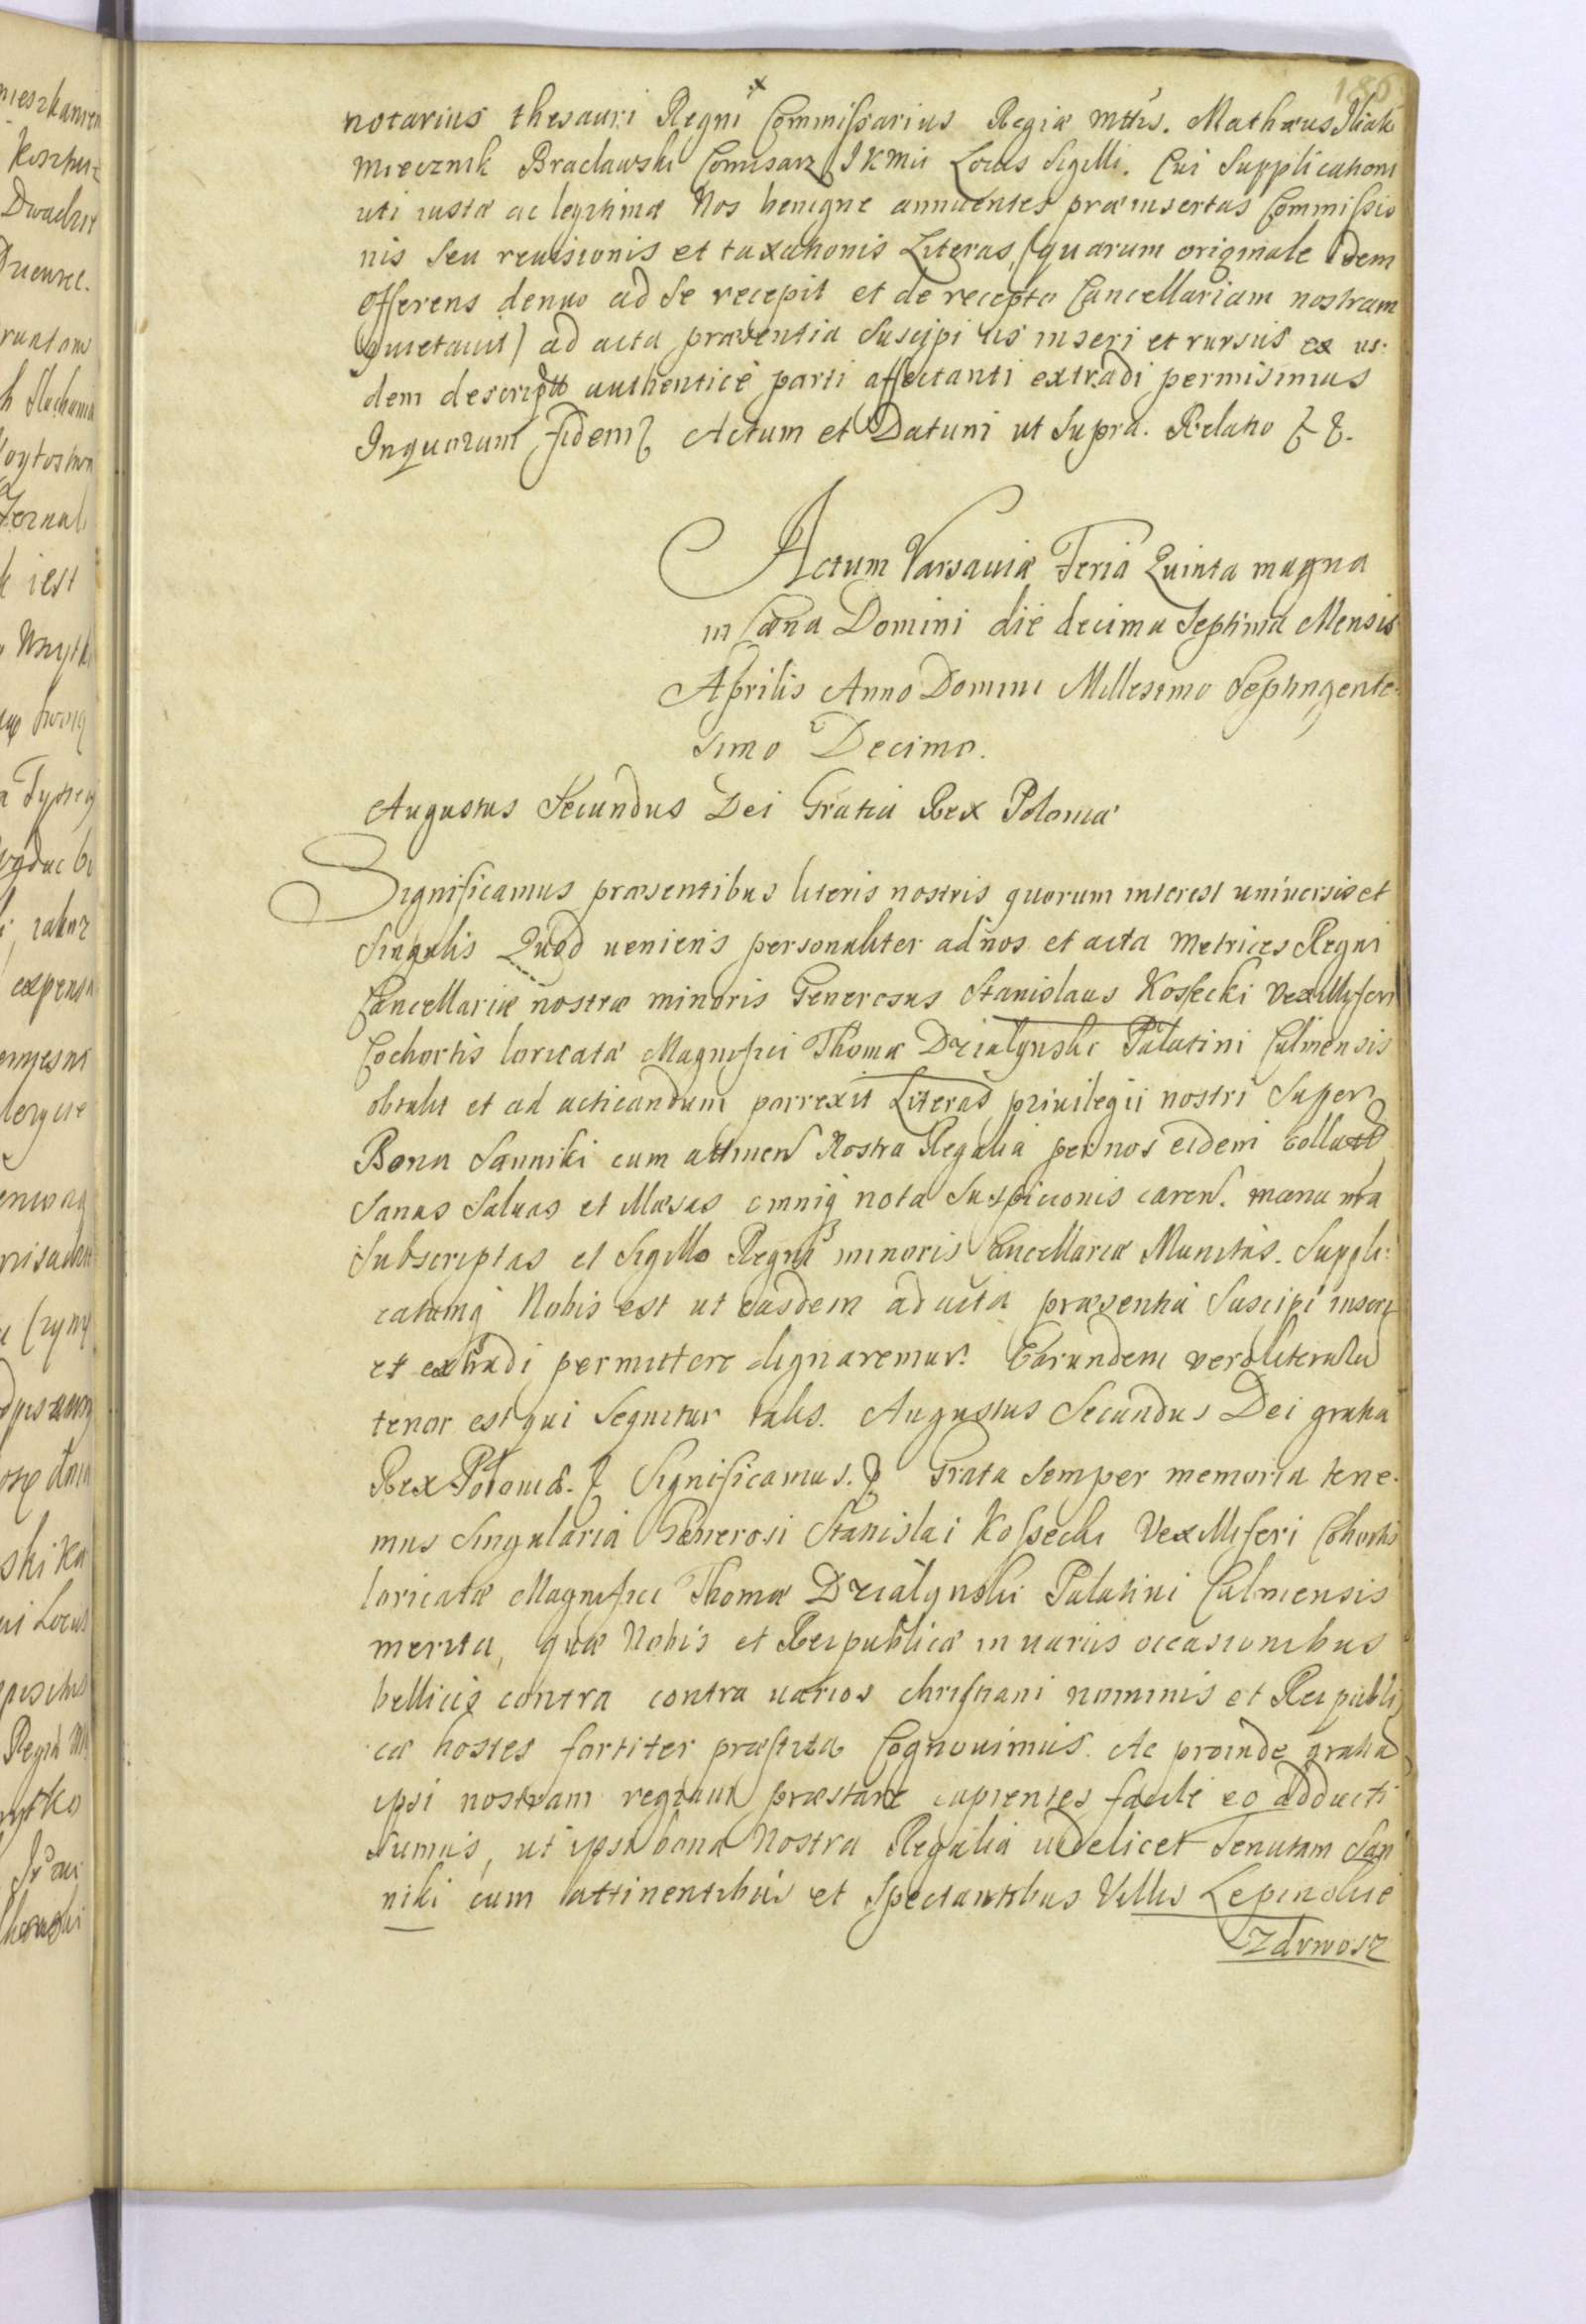 186
notarius thesauri Regni Commissarius Regiæ mttis. Mathæus
Miecznik Bracławski Comisarz JKMci Locus Sigilli. Cui Supplicationi
uti iustæ ac legitimæ Nos benigne annuentes præinsertas Commissio
nis seu reuisionis et taxationis Literas, (quarum originale idem
offerens denuo ad se recepit et de recepto Cancellariam nostram
quietauit) ad acta præsentia Suscipi iis inseri et rursus ex iis:
dem descriptas authenticè parti affectanti extradi permisimus
Inquorum fidem Actum et Datum ut Supra. Relatio
Actum Varsauiæ Feria Quinta magna
in Cæna Domini die decima Septima Mensis
Aprilis Anno Domini Millesimo Septingente-
simo Decimo.
Augustus Secundus Dei Gratia Rex Poloniæ
Significamus præsentibus literis nostris quorum interest uniuersis et
Singulis Quod ueniens personaliter ad nos et acta Metrices Regni
Cancellariæ nostræ minoris Generosus Stanislaus Kossecki Vexilliferi
Cochortis loricatæ Magnifici Thomæ Dzialynski Palatini Culmensis
obtulit et ad acticandum porrexit Literas priuilegii nostri Super
Bona Sanniki cum attinen Nostra Regalia per nos eidem collatas
Sanas Saluas et illæsas omniq nota Suspicionis caren. manu nra
Subscriptas et Sigillo Regni minoris Cancellariæ Munitas. Suppli:
catumq Nobis est ut easdem ad acta præsentia Suscipi inseri
et extradi permittere dignaremur. Earundem vero literarum
tenor est qui Sequitur talis. Augustus Secundus Dei gratia
Rex Poloniæ. Significamus. Grata Semper memoria tene-
mus Singularia Generosi Stanislai Kossecki Vexilliferi Cohortis
loricatæ Magnifici Thomæ Dzialynski Palatini Culmensis
merita, quæ Nobis et Reipublicæ in uariis occasionibus
bellicis contra contra uarios christiani nominis et Reipubli
cæ hostes fortiter præstita Cognouimus. Ac proinde gratiam
ipsi nostram regiam præstare cupientes facile eo adducti
sumus, ut ipsi bona Nostra Regalia uidelicet Tenutam San
niki cum attinentibus et Spectantibus Villis Lepinskie
Zdrwosz